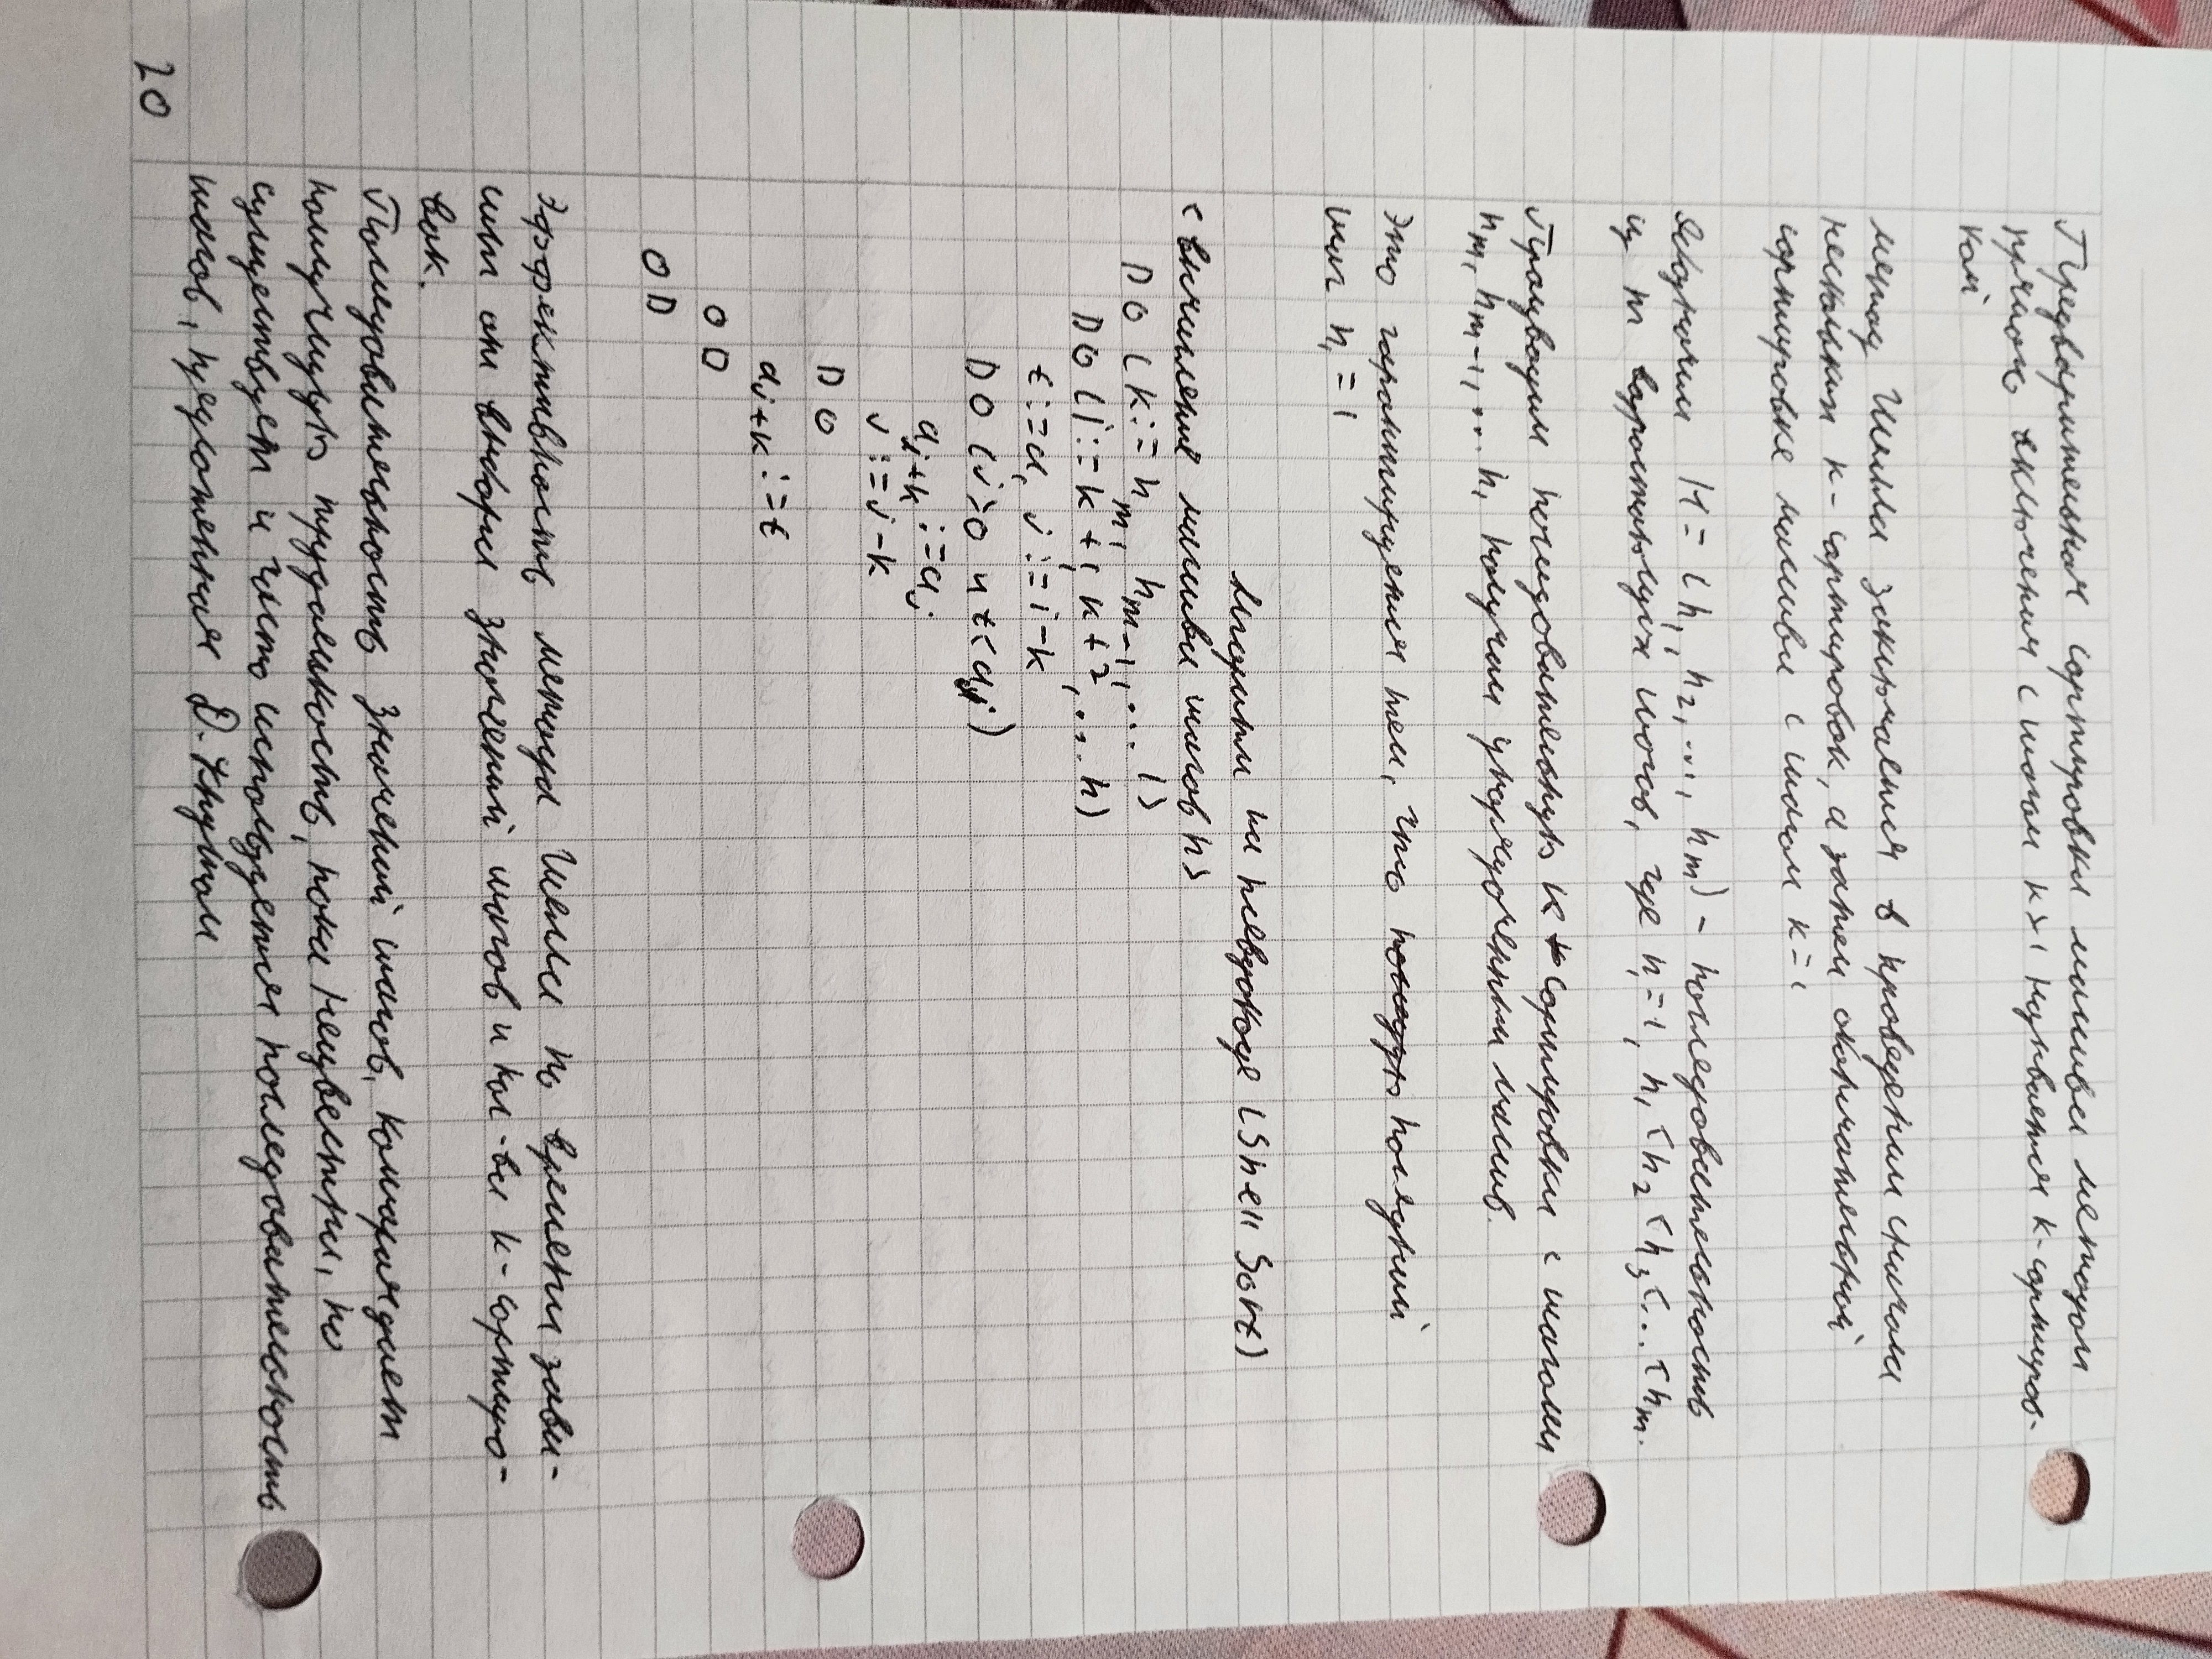 Предварительная сортировка массива методом
прямого включения с шагом k>1 называется k-сортиров-
кой
метод Шелла заключается в проведении сначала
нескольких k-сортировок, а затем окончательной
сортировке массива с шагом k=1
Обозначим H = (h₁, h₂, ..., hₘ) - последовательность
из m возрастающих шагов, где h₁=1, h₁<h₂<h₃<...<hₘ.
Производим последовательную k сортировки с шагами
hₘ, hₘ₋₁, ... h₁ получим упорядоченный массив.
Это гарантируется тем, что последний
шаг h₁ = 1
Алгоритм на псевдокоде (Shell Sort)
<вычисление массива шагов h>
DO (k:=hₘ, hₘ₋₁, ... 1)
DO (i:=k+1, k+2, ... n)
t:=a, j:=i-k
DO (j>0 и t<aⱼ)
aⱼ₊ₖ:=aⱼ
j:=j-k
DO
aⱼ₊ₖ:=t
OD
OD
Эффективность метода Шелла по времени зави-
сит от выбора значений шагов и кол-ва k-сортиро-
вок.
Последовательность значений шагов, которая дает
наилучшую трудоемкость, пока неизвестна, но
существует и часто используется последовательность
шагов, предложенная Д. Кнутом
20